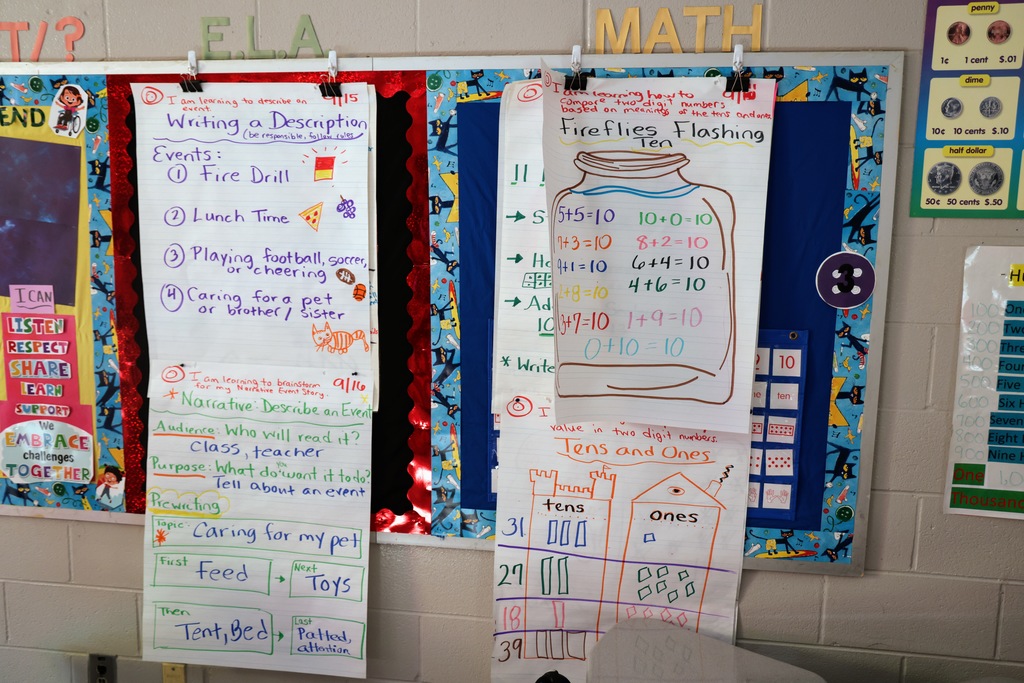 T/?
E.L.A
MATH
END
I CAN
LISTEN
RESPECT
SHARE
LEARN
SUPPORT
We
EMBRACE
challenges
TOGETHER
I am learning to describe an
event.
9/15
Writing a Description
(be responsible, follow rules
Events:
1 Fire Drill
2 Lunch Time
3 Playing football, soccer,
or cheering
4 Caring for a pet
or brother/sister
I am learning to brainstorm
for my Narrative Event Story.
9/16
Narrative: Describe an Event
Audience: Who will read it?
Class, teacher
Purpose: What do you want it to do?
Tell about an event
Prewriting
Topic: Caring for my pet
First
Feed
Next
Toys
Then
Tent, Bed
Last
Patted,
attention
I am learning how to
compare two digit numbers
based on meanings of the tens and ones
Fireflies Flashing
Ten
5+5=10
10+0=10
7+3=10
8+2=10
9+1=10
6+4=10
2+8=10
4+6=10
3+7=10
1+9=10
0+10=10
11
10
* Write
I
value in two digit numbers.
Tens and Ones
tens
ones
31
27
18
39
10
ten
3
penny
1¢ 1 cent $.01
dime
10¢ 10 cents $.10
half dollar
50¢ 50 cents $.50
One
Thousand